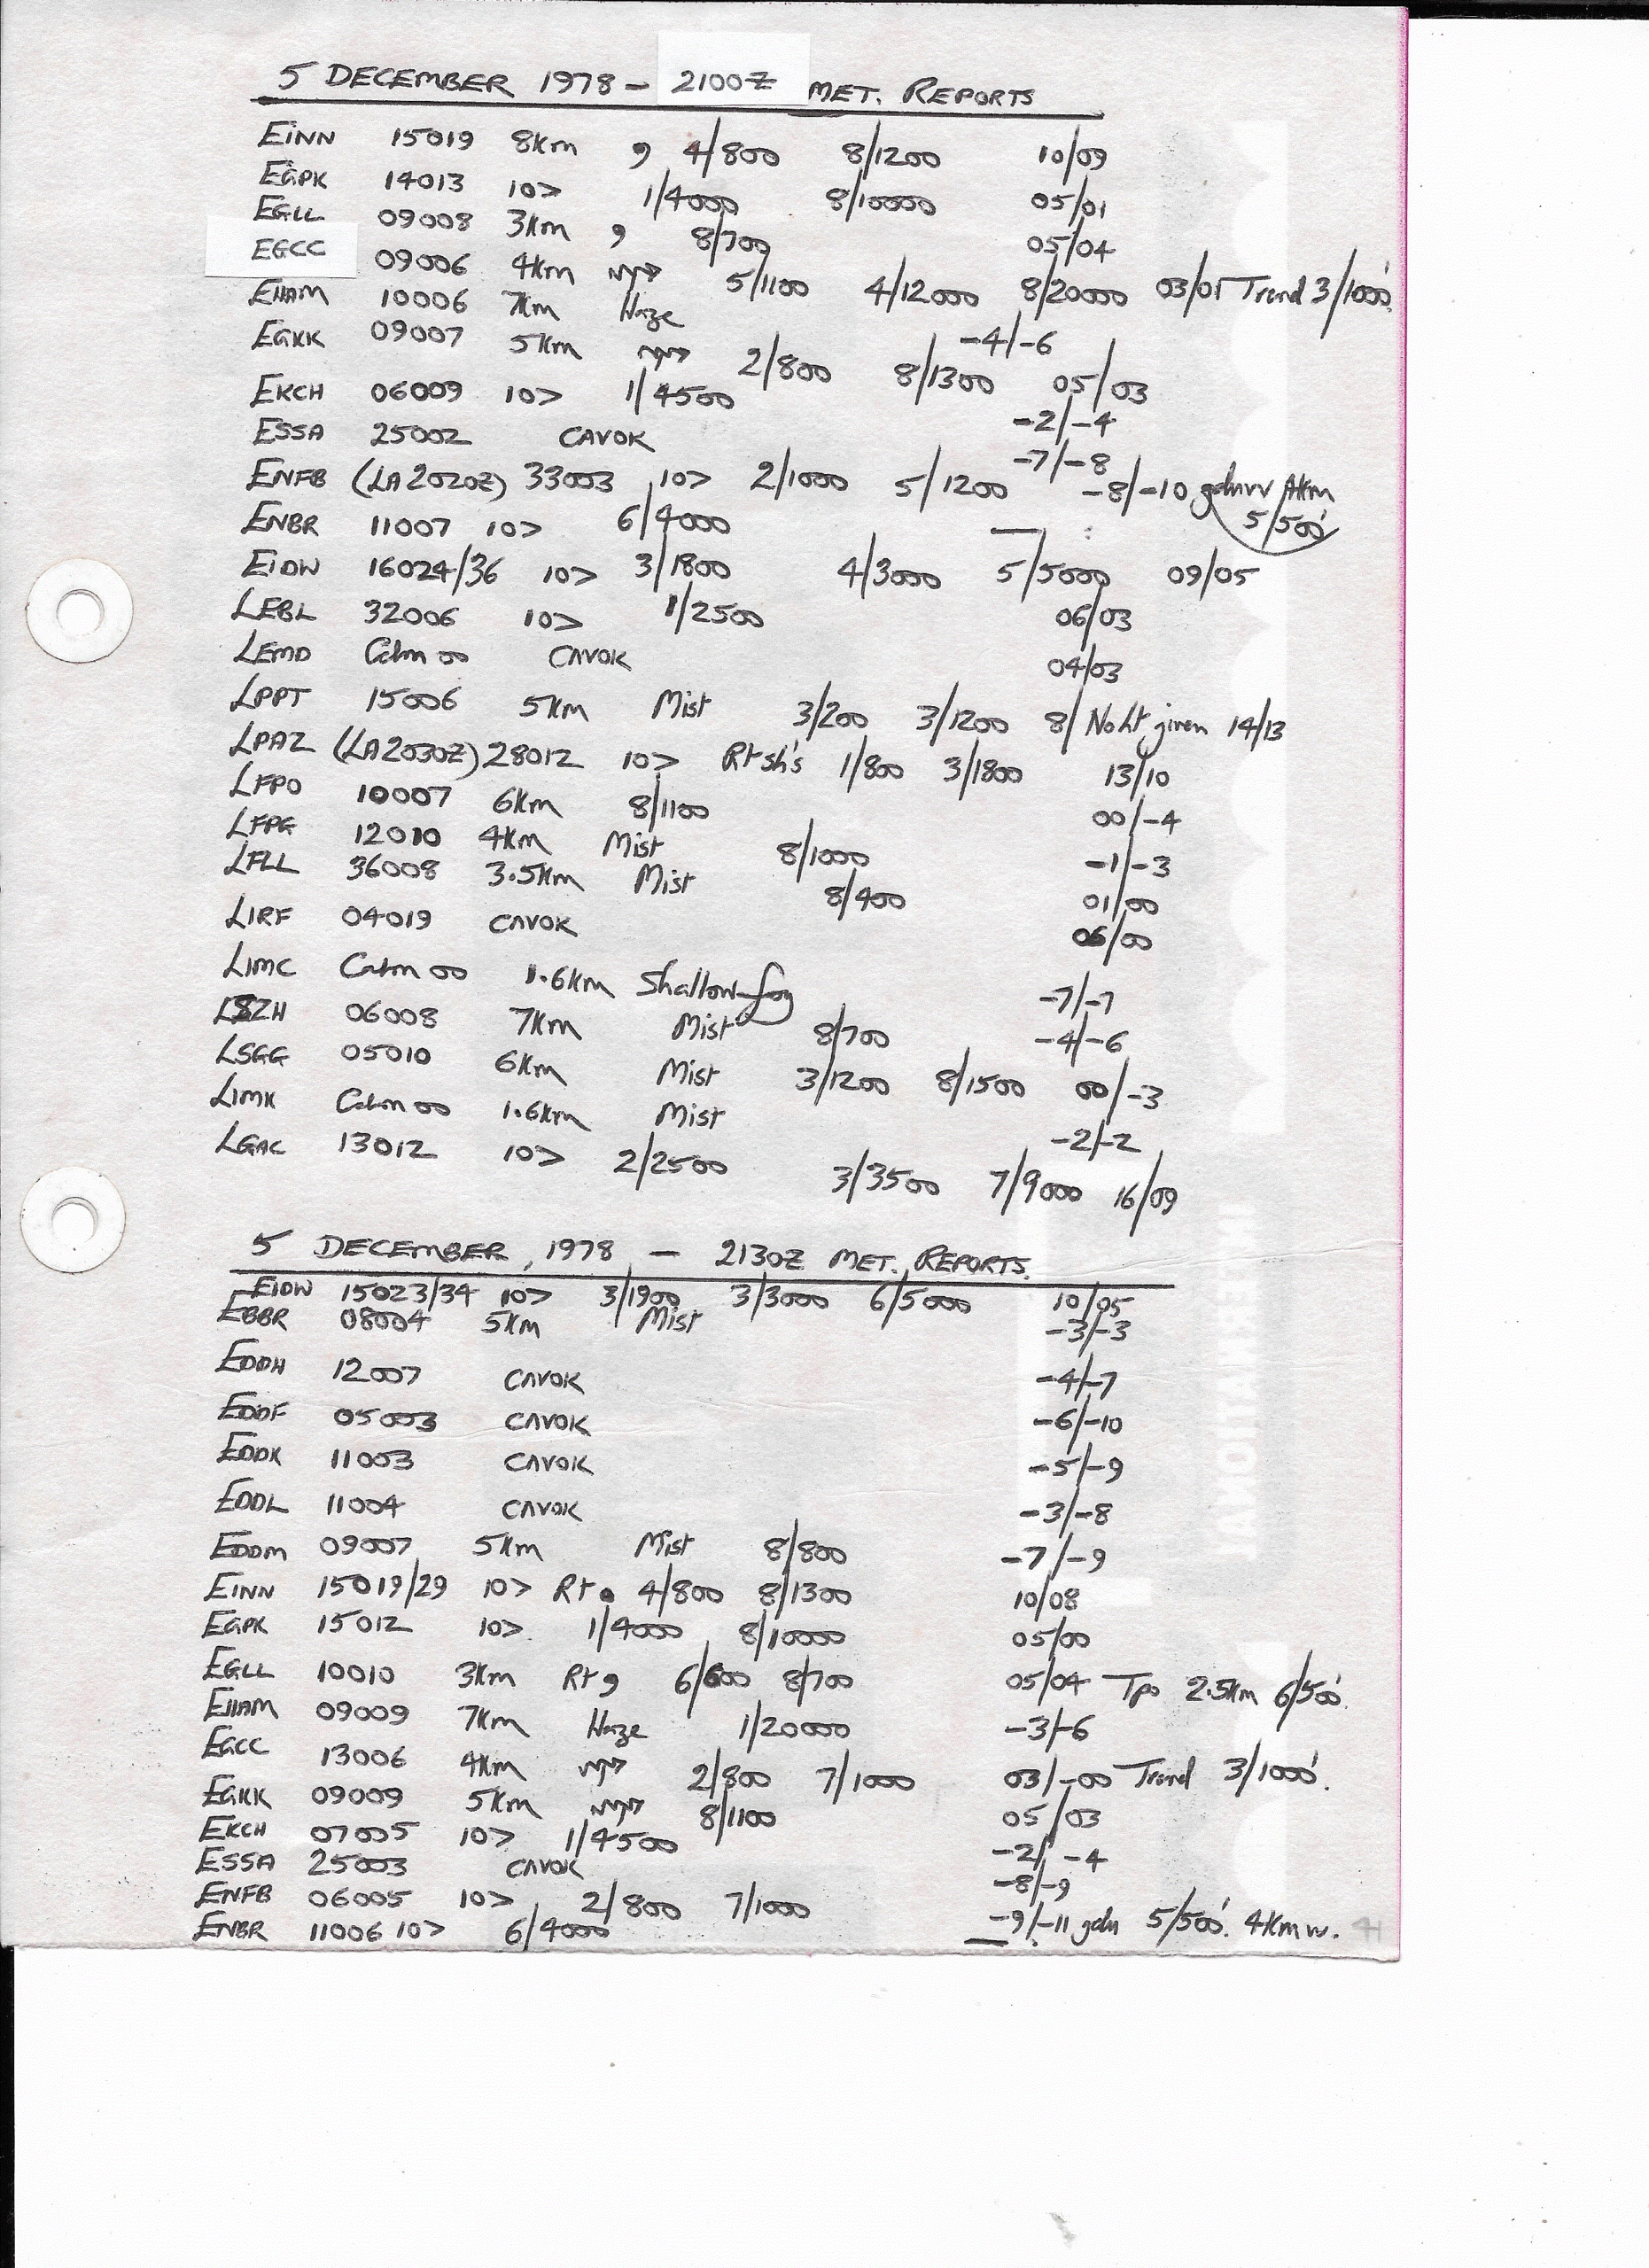 5 DECEMBER 1978 - 2100Z MET. REPORTS
EINN 15019 8Km , 4/800 8/1200 10/09
EGPK 14013 10> 1/4000 8/10000 05/01
EGLL 09008 3Km , 8/700 05/04
EGCC 09006 4Km 5/1100 4/12000 8/20000 03/01 Trend 3/1000'.
EHAM 10006 7Km Haze -4/-6
EGKK 09007 5Km 2/800 8/1300 05/03
EKCH 06009 10> 1/4500 -2/-4
ESSA 25002 CAVOK -7/-8
ENFB (LA 2020Z) 33003 10> 2/1000 5/1200 -8/-10 4Km
5/500'
ENBR 11007 10> 6/4000 — :
EIDW 16024/36 10> 3/1800 4/3000 5/5000 09/05
LEBL 32006 10> 1/2500 06/03
LEMD Calm 00 CAVOK 04/03
LPPT 15006 5Km Mist 3/200 3/1200 8/ No ht given 14/13
LPAZ (LA 2030Z) 28012 10> Rt sh's 1/800 3/1800 13/10
LFPO 10007 6Km 8/1100 00/-4
LFPG 12010 4Km Mist 8/1000 -1/-3
LFLL 36008 3.5Km Mist 8/400 01/00
LIRF 04019 CAVOK 06/00
LIMC Calm 00 1.6Km Shallow fog -7/-7
LSZH 06008 7Km Mist 8/700 -4/-6
LSGG 05010 6Km Mist 3/1200 8/1500 00/-3
LIMK Calm 00 1.6Km Mist -2/-2
LGAC 13012 10> 2/2500 3/3500 7/9000 16/09
5 DECEMBER, 1978 - 2130Z MET. REPORTS.
EIDW 15023/34 10> 3/1900 3/3000 6/5000 10/05
EBBR 08004 5Km Mist -3/-3
EDDH 12007 CAVOK -4/-7
EDDF 05003 CAVOK -6/-10
EDDK 11003 CAVOK -5/-9
EDDL 11004 CAVOK -3/-8
EDDM 09007 5Km Mist 8/800 -7/-9
EINN 15019/29 10> Rt • 4/800 8/1300 10/08
EGPK 15012 10> 1/4000 8/10000 05/00
EGLL 10010 3Km Rt , 6/600 8/700 05/04 Tpo 2.5Km 6/500'.
EHAM 09009 7Km Haze 1/20000 -3/-6
EGCC 13006 4Km 2/800 7/1000 03/-00 Trend 3/1000'.
EGKK 09009 5Km 8/1100 05/03
EKCH 07005 10> 1/4500 -2/-4
ESSA 25003 CAVOK -8/-9
ENFB 06005 10> 2/800 7/1000 -9/-11 gdu 5/500'. 4Km w.
ENBR 11006 10> 6/4000 — .